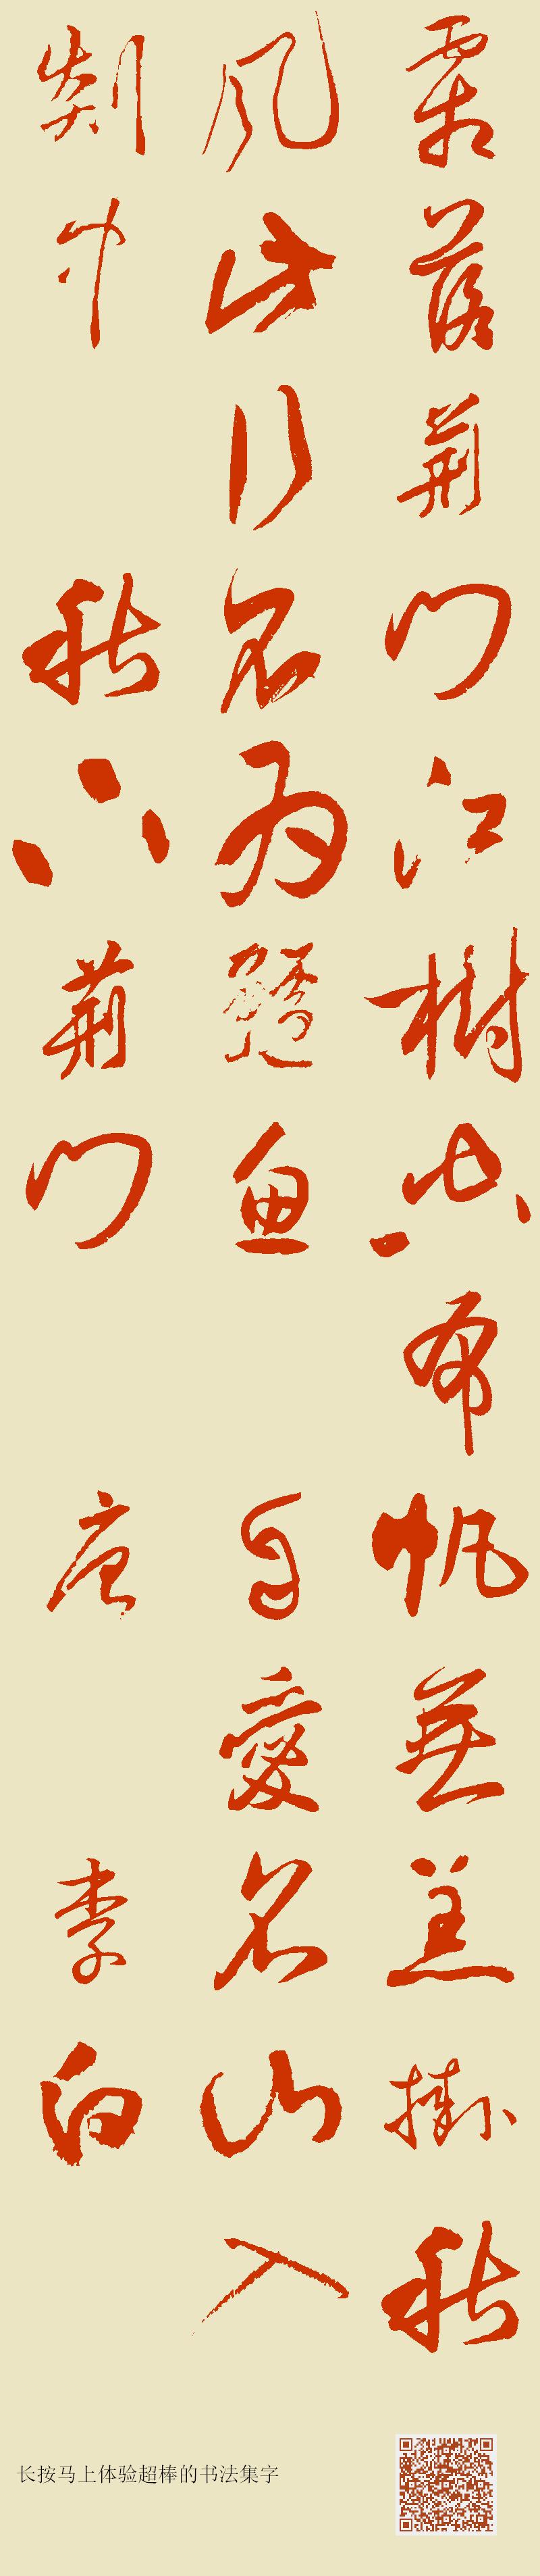 霜落荆门江樹空布帆無恙掛秋
風此行不为鱸魚 自愛名山入
剡中 秋下荆门 唐 李白
长按马上体验超棒的书法集字